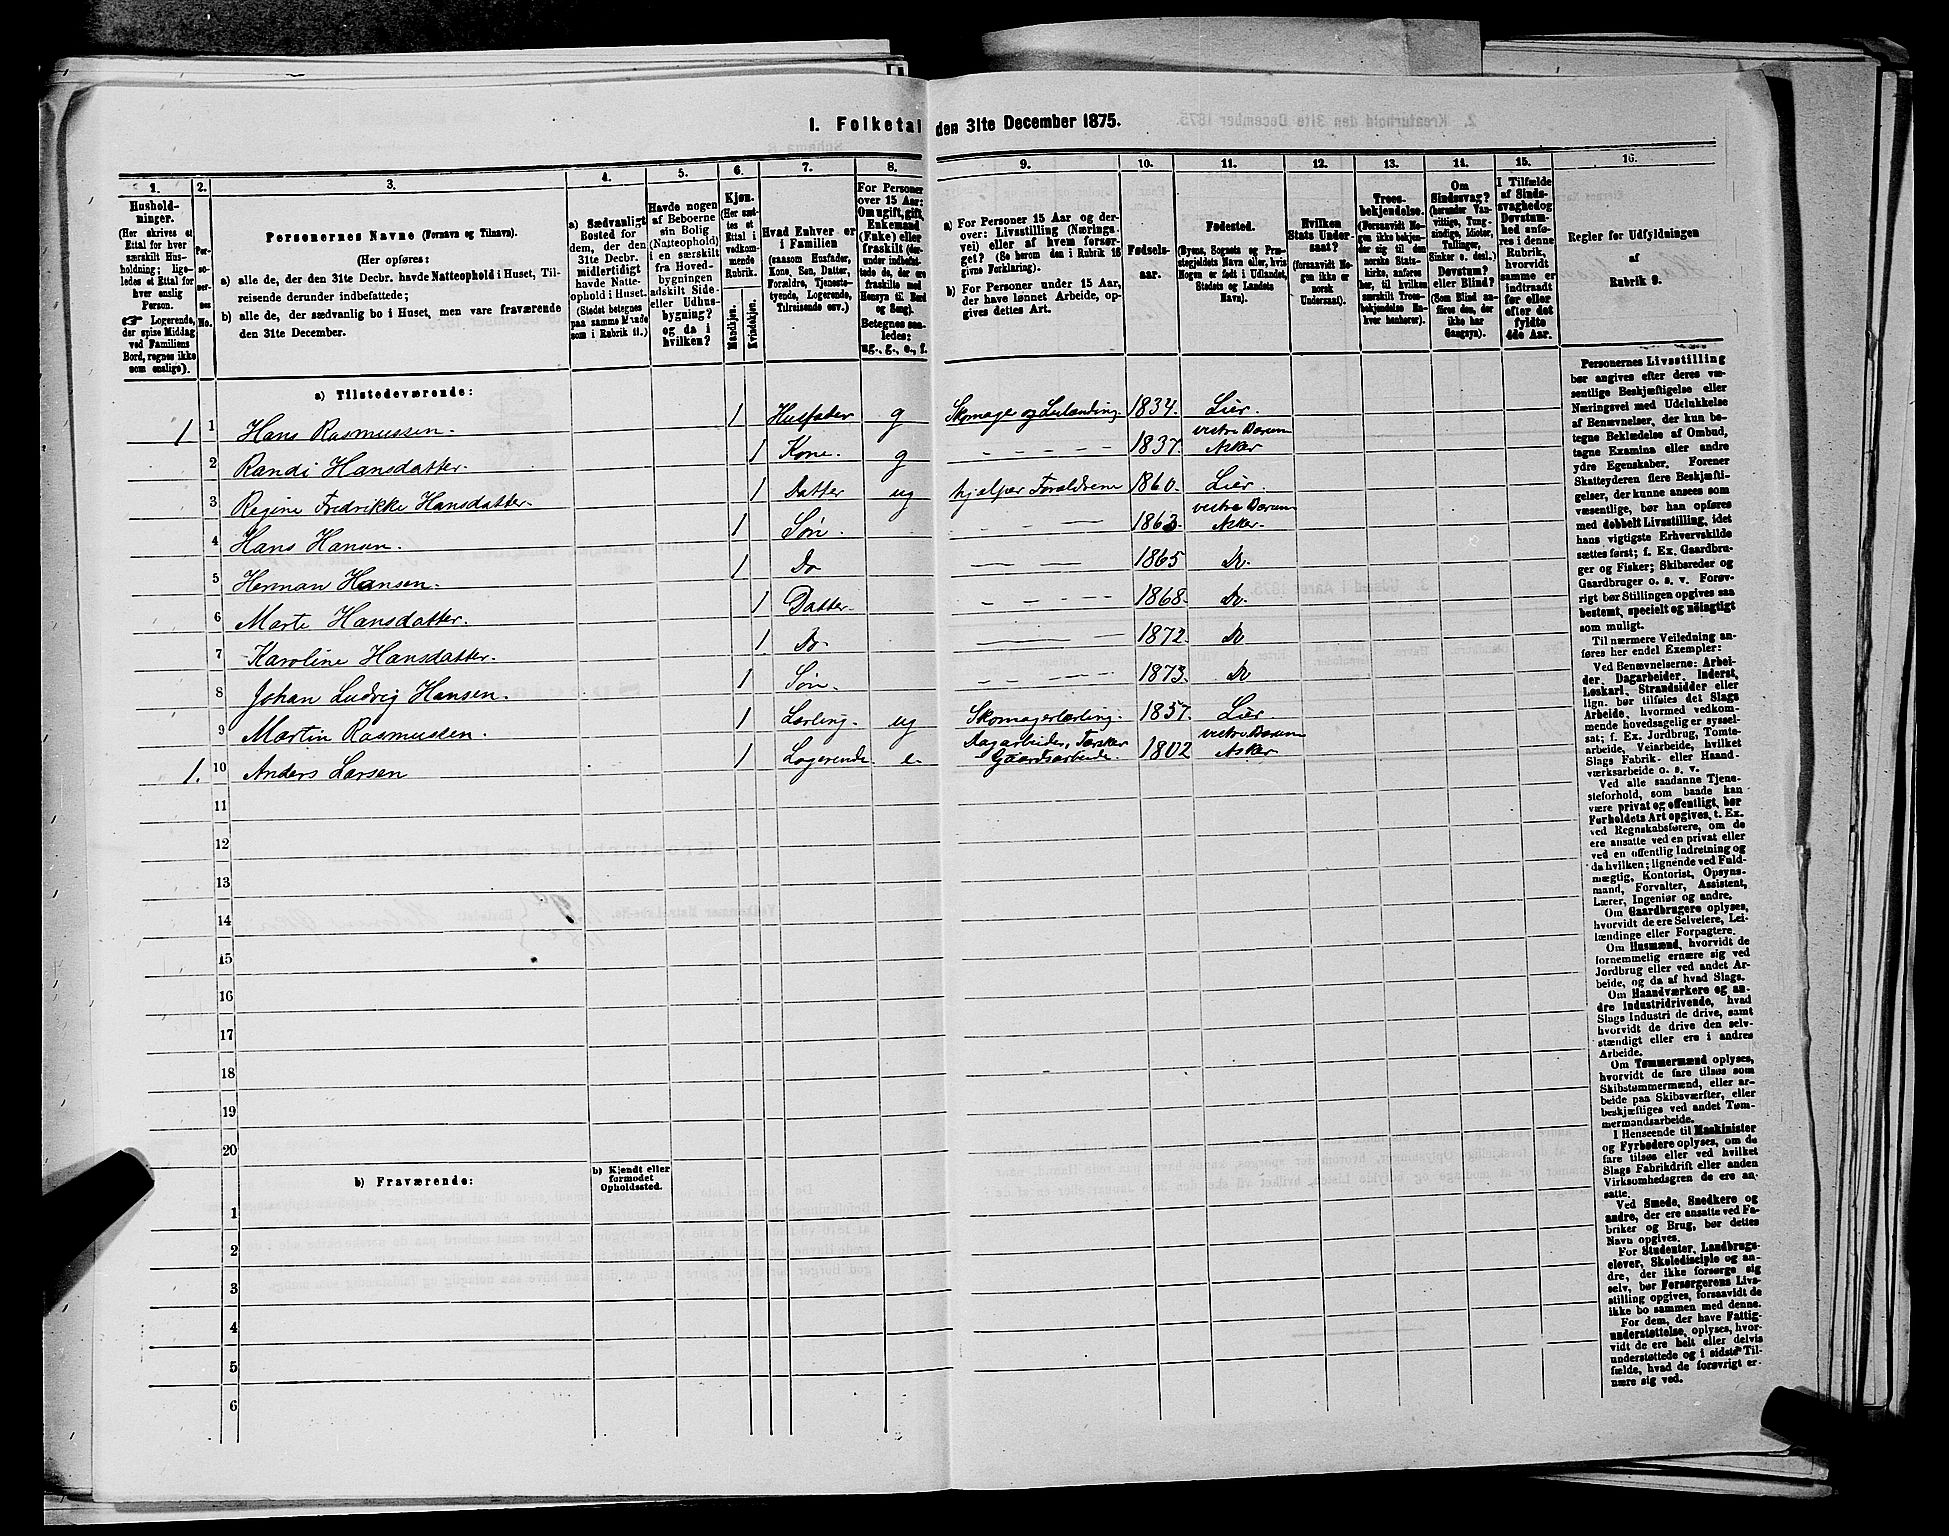 1. Folketal den 31te December 1875.
1. 2. 3. 4. 5. 6. 7. 8. 9. 10. 11. 12. 13. 14. 15. 16.
Husholdninger.
(Her skrives et
Ettal for hver
særskilt Husholdning; ligeledes et Ettal for
hver enslig
Person.
☞ Logerende,
der spise Middag
ved Familiens
Bord, regnes ikke
som enslige).
Personernes No.
Personernes Navne (Fornavn og Tilnavn).
(Her opføres:
a) alle de, der den 31te Decbr. havde Natteophold i Huset, Tilreisende derunder indbefattede;
b) alle de, der sædvanlig bo i Huset, men vare fraværende
den 31te December.
a) Sædvanligt
Bosted for
dem, der den
31te Decbr.
midlertidigt
havde Natteophold i Huset.
(Stedet betegnes
paa samme Maade
som i Rubrik 11.)
Havde nogen
af Beboerne
sin Bolig
(Natteophold)
i en særskilt
fra Hovedbygningen
adskilt Side-
eller Udhusbygning?
og da i
hvilken?
Kjøn.
(Her sættes et
Ettal i
vedkommende
Rubrik.
Mandkjøn.
Kvindekjøn.
Hvad Enhver er
i Familien
(saasom Husfader,
Kone, Søn, Datter,
Forældre, Tjenestetyende, Logerende,
Tilreisende osv.)
For Personer
over 15 Aar:
Om ugift, gift,
Enkemand
(Enke) eller
fraskilt (derunder indbefattede de, der ere
fraskilte med
Hensyn til Bord
og Seng).
Betegnes saaledes:
ug., g., e., f.
a) For Personer 15 Aar og derover: Livsstilling (Næringsvei) eller af hvem forsørget? (Se herom den i Rubrik 16
givne Forklaring).
b) For Personer under 15 Aar,
der have lønnet Arbeide, opgives dettes Art.
Fødselsaar.
Fødested.
(Byens, Sognets og Præstegjeldets Navn eller, hvis
Nogen er født i Udlandet,
Stedets og Landets
Navn).
Hvilken
Stats Undersaat?
(forsaavidt Nogen ikke er
norsk
Undersaat).
Troesbekjendelse.
(Forsaavidt Nogen ikke bekjender sig til
den norske Statskirke, anføres
her, til hvilken
særskilt Troesbekjendelse Enhver henhører).
Om
Sindssvag?
(herunder Vanvittige, Tungsindige, Idioter,
Tullinger,
Sinker o. desl.)
Døvstum?
eller Blind?
(Som Blind anføres den, der
ikke har
Gangsyn).
I Tilfælde
af Sindssvaghed og
Døvstumhed anføres i denne
Rubrik,
hvorvidt
samme er
indtraadt
før eller
efter det
fyldte
4de Aar.
Regler for Udfyldningen
af
Rubrik 9.
a) Tilstedeværende:
1 1 Hans Rasmussen. 1 Husfader g Skomager og Leilænding 1834. Lier.
2 Randi Hansdatter. 1 Kone. g — — — — 1837. vestre Bærum Asker
3 Regine Fredrikke Hansdatter. 1 Datter ug hjelper Forældrene 1860. Lier.
4 Hans Hansen. 1 Søn. — — — 1863. vestre Bærum Asker.
5 Herman Hansen. 1 Do — — — 1865 Do.
6 Marte Hansdatter. 1 Datter. — — — — 1868. Do.
7 Karoline Hansdatter. 1 Do. 1872. Do
8 Johan Ludvig Hansen. 1 Søn. — — — — 1873. Do
9 Martin Rasmussen. 1 Lærling. ug Skomagerlærling. 1857. Lier.
1. 10 Anders Larsen 1 Logerende. e. Dagarbeider, Tærsker Gaardsarbeide. 1802 vestre Bærum Asker.
11
12
13
14
15
16
17
18
19
20
b) Fraværende:
b) Kjendt eller
formodet
Opholdssted.
1
2
3
4
5
6
Personernes Livsstilling
bør angives efter deres væsentlige Beskjæftigelse eller
Næringsvei med Udelukkelse
af Benævnelser, der kun betegne Beklædelse af Ombud,
tagne Examina eller andre
ydre Egenskaber. Forener
Skatteyderen flere Beskjæftigelser, der kunne ansees som
væsentlige, bør han opføres
med dobbelt Livsstilling, idet
hans vigtigste Erhvervskilde
sættes først; f. Ex. Gaardbruger og Fisker; Skibsreder og
Gaardbruger o. s. v. Forøvrigt bør Stillingen opgives saa
bestemt, specielt og nøiagtigt
som muligt.
Til nærmere Veiledning anføres her endel Exempler:
Ved Benævnelserne: Arbeider, Dagarbeider, Inderst,
Løskarl, Strandsidder eller
lign. bør tilføies det Slags
Arbeide, hvormed vedkommende hovedsagelig er sysselsat; f. Ex. Jordbrug, Tomtearbeide, Veiarbeide, hvilket
Slags Fabrik- eller Haandværksarbeide o. s. v.
Ved alle saadanne Tjenesteforhold, som baade kan
være privat og offentligt, bør
Forholdets Art opgives, t. Ex.
ved Regnskabsførere, om de
ere ansatte ved en privat eller
ved en offentlig Indretning og
da hvilken; lignende ved Fuldmægtig, Kontorist, Opsynsmand, Forvalter, Assistent,
Lærer, Ingeniør og andre.
Om Gaardbrugere oplyses,
hvorvidt de ere Selveiere, Leilændinge eller Forpagtere.
Om Husmænd, hvorvidt de
fornemmelig ernære sig ved
Jordbrug eller ved andet Arbeide, og da af hvad Slags.
Om Haandværkere og andre Industridrivende, hvad
Slags Industri de drive, samt
hvorvidt de drive den selvstændigt eller ere i andres
Arbeide.
Om Tømmermænd oplyses,
hvorvidt de fare tilsøs som
Skibstømmermænd, eller arbeide paa Skibsværfter, eller
beskjæftiges ved andet Tømmermandsarbeide.
I Henseende til Maskinister
og Fyrbødere oplyses, om de
fare tilsøs eller ved hvilket
Slags Fabrikdrift eller anden
Virksomhedsgren de ere ansatte.
Ved Smede, Snedkere og
andre, der ere ansatte ved Fabriker og Brug, bør dettes
Navn opgives.
For Studenter, Landbrugselever, Skoledisciple og andre, der ikke forsørge sig
selv, bør Forsørgerens Livsstilling opgives, forsaavidt de
ikke bo sammen med denne.
For dem, der have Fattigunderstøttelse, oplyses, hvorvidt de ere helt eller delvis
understøttede og i sidste Tilfælde, hvad de forøvrigt ernære sig ved.